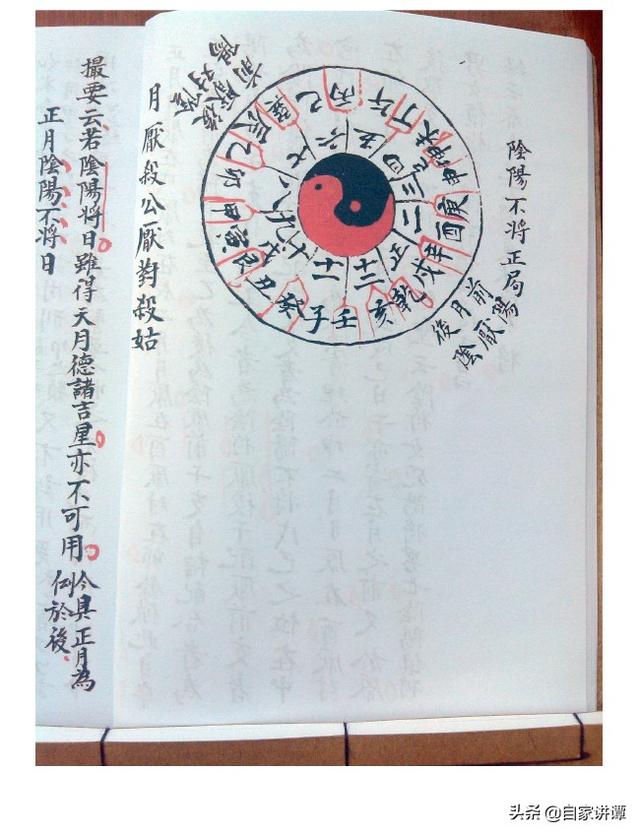 陰陽不將正局
前陽
月厭
後陰
壬子癸丑艮寅甲卯乙辰巽巳丙午丁未坤申庚酉辛戌乾亥
正二三四五六七八九十十一十二
前陰
厭對
後陽
月厭殺公厭對殺姑
撮要云若陰陽将日雖得天月德諸吉星亦不可用
今具正月為
例於後
正月陰陽不将日
头条 @自家讲谭